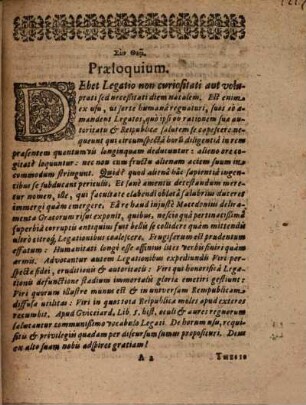 Σὺν Θεῷ.
Præloquium.
DEbet Legatio non curiositati aut volu-
ptati sed necessitati diem natalem. Est enim
ex usu, ut ferte humana regnatur, suas
amandent Legatos, quò ipsi ob rationem sua au-
toritatis & Reipublicæ salutem
equeunt qui circumspectâ horū diligentiâ in rem
præsentem quantumvis longinquam deducuntur: alieno ore &
loquuntur: nec non cum fructu alienam aciem suum in-
commodum stringunt. Quid? quod alienâ hâc sapientiâ in-
gentibus se subducant periculis. Et sanè amentis detestandum mere-
tur nomen, ille, qui facultate elabendi oblatâ salubrius duceret
immergi quàm emergere. Eâ re haud injustè Macedonis deli-
ramenta Oratorum risus exponit, quibus, nescio quâ pertinacissimâ
superbiâ corruptis antiquius fuit bellis se collidere quàm mittendis
ultrò citroq; Legationibus coalescere. Frugiferum est profectò
effatum: Humanitati longè esse affinius lites verbis finire quàm
armis. Advocantur autem Legationibus expediundis Viri per-
spectâ fidei, eruditionis & autoritatis: Viri qui honorificâ Lega-
tionis defunctione stadium immortalis gloriæ emetiri gestiunt:
Viri quorum illustre munus est & in universam Rempublicam
diffusa utilitas: Viri in quos tota Reipublicæ moles apud exteros
recumbit. Apud Gviciard. Lib. 5. hist. oculi & aures regnorum
salutantur communissimo vocabulo Legati. De horum usu, requi-
sitis & privilegiis quædam per discursum sumus proposituri. Deus
qu also suam nobis adspiret gratiam!
A 2
THESIS